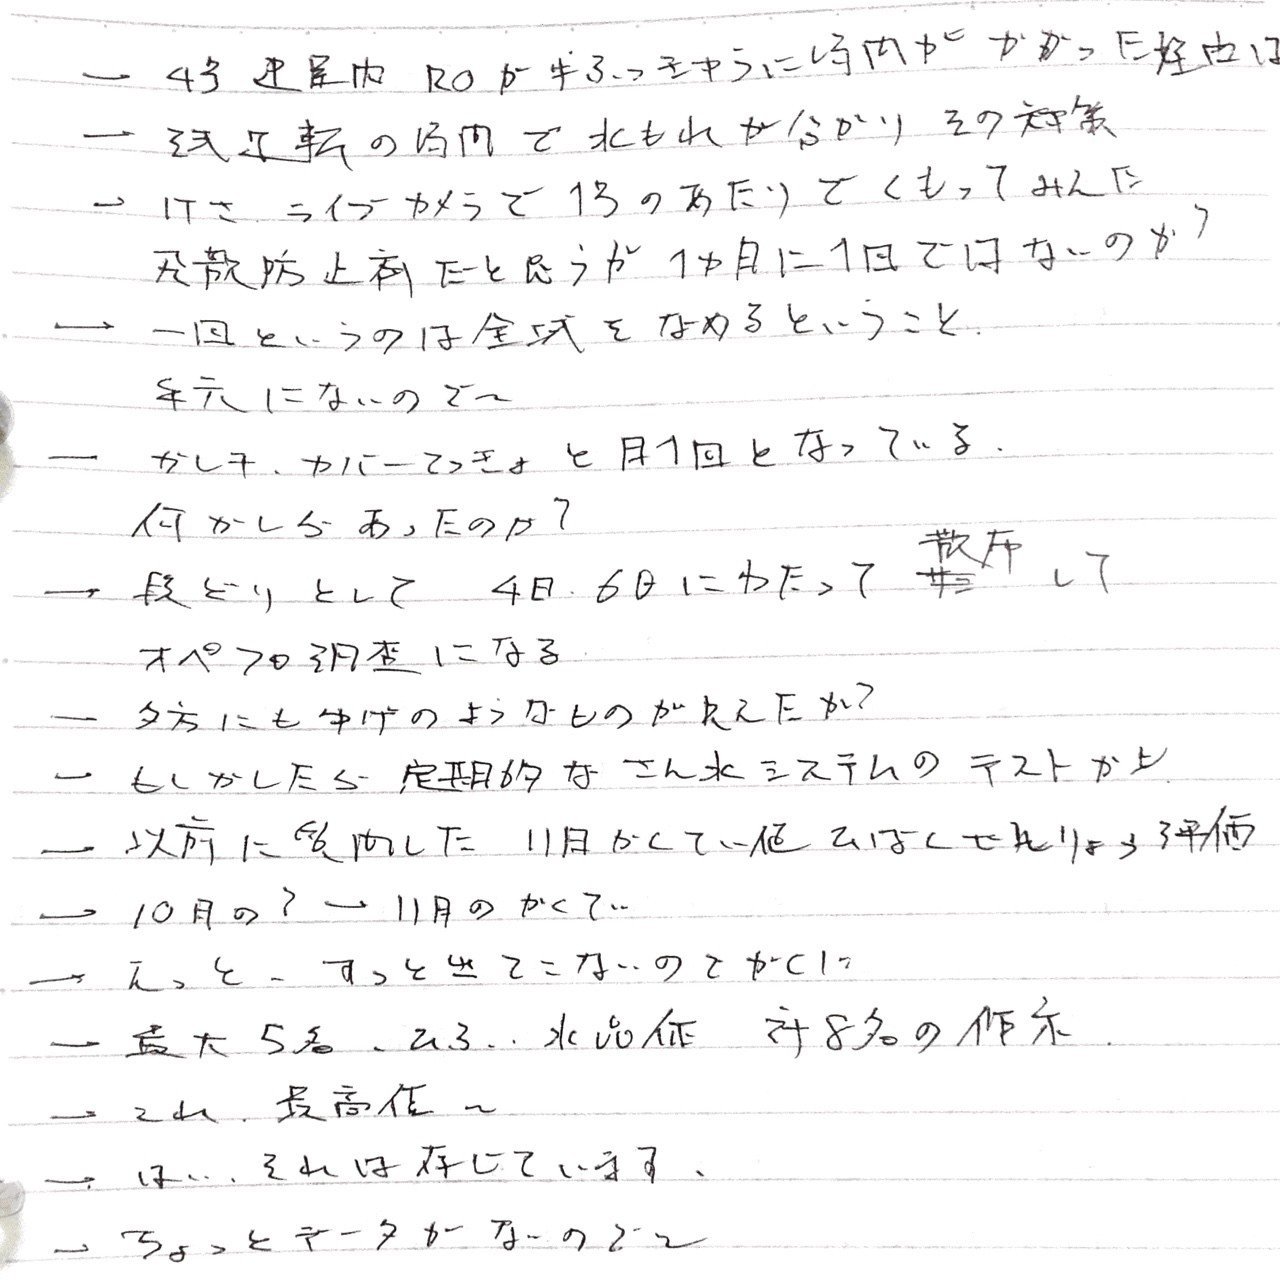 ― 4号建屋内 ROが半ふっきゅうに時間がかかった経由は
― 試運転の時間で水もれが分かり その対策
― けさ ライブカメラで1号のあたりでくもってみえた
飛散防止剤だと思うが 1ヵ月に1回ではないのか?
→ 一回というのは全域をなめるということ.
手元にないので〜
― がしキ、カバーてっきょと月1回となっている.
何かしらあったのか?
→ 段どりとして 4日.6日にわたって 散布して
オペフロ調査になる
― 夕方にもゆげのようなものが見えたが?
― もしかしたら 定期的なさん水システムのテストかと
→ 以前に質問した 11月かくてい値 ひばくせんりょう評価
→ 10月の? ― 11月のかくてい
→ えっと、すっと出てこないので
― 最大5名、 計8名の
→ これ、最高値〜
→ はい、それは存じています、
→ ちょっとデータがないので〜